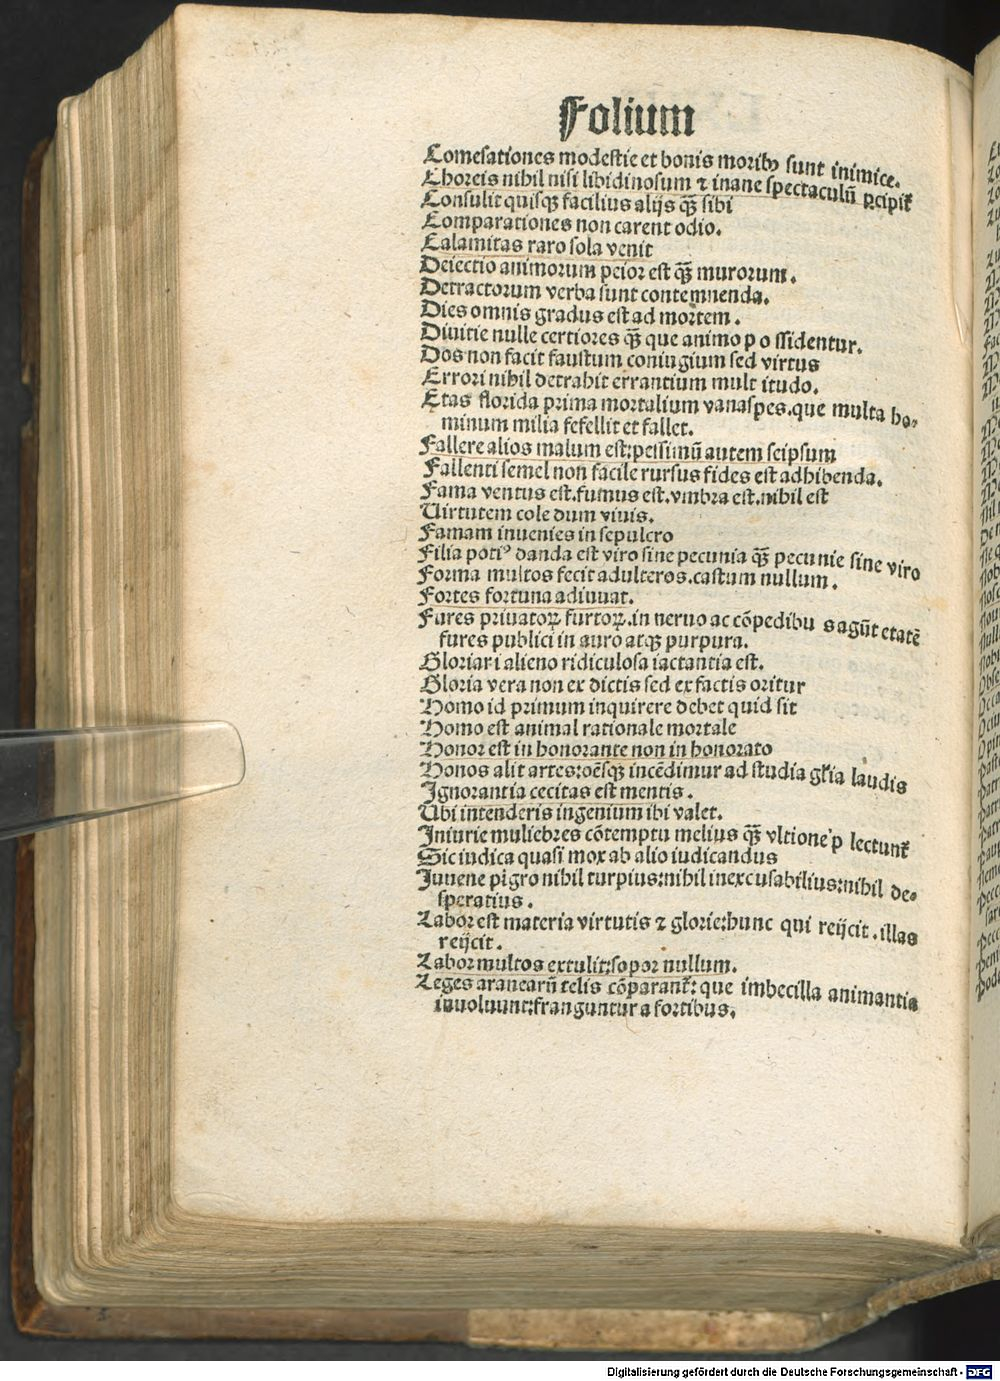 Folium
Comesationes modestie et bonis moribꝰ sunt inimice.
Choreis nihil nisi libidinosum ⁊ inane spectaculū ꝑcipit̃
Consulit quisqꝫ facilius alijs qꝫ̃ sibi
Comparationes non carent odio.
Calamitas raro sola venit
Deiectio animorum peior est qꝫ̃ murorum.
Detractorum verba sunt contemnenda.
Dies omnis gradus est ad mortem.
Diuitie nulle certiores qꝫ̃ que animo po ssidentur.
Dos non facit faustum coniugium sed virtus
Errori nihil detrahit errantium mult itudo.
Etas florida prima mortalium vanaspes.que multa ho-
minum milia fefellit et fallet.
Fallere alios malum est:pessimū autem seipsum
Fallenti semel non facile rursus fides est adhibenda.
Fama ventus est.fumus est.vmbra est.nihil est
Uirtutem cole dum viuis.
Famam inuenies in sepulcro
Filia potiꝰ danda est viro sine pecunia qꝫ̃ pecunie sine viro
Forma multos fecit adulteros.castum nullum.
Fortes fortuna adiuuat.
Fures priuatoꝝ furtoꝝ.in neruo ac cōpedibu s agūt etatē
fures publici in auro atqꝫ purpura.
Gloriari alieno ridiculosa iactantia est.
Gloria vera non ex dictis sed ex factis oritur
Homo id primum inquirere debet quid sit
Homo est animal rationale mortale
Honor est in honorante non in honorato
Honos alit artes:oēsqꝫ incēdimur ad studia gl̃ia laudis
Ignorantia cecitas est mentis.
Ubi intenderis ingenium ibi valet.
Iniurie muliebres cōtemptu melius qꝫ̃ vltione p lectunt̃
Sic iudica quasi mox ab alio iudicandus
Iuuene pigro nihil turpius:nihil inexcusabilius:nihil de-
speratius.
Labor est materia virtutis ⁊ glorie:hunc qui reijcit.illas
reijcit.
Labor multos extulit:sopor nullum.
Leges aranearū telis cōparant̃:que imbecilla animantia
inuoluunt:franguntur a fortibus.
Digitalisierung gefördert durch die Deutsche Forschungsgemeinschaft - DFG